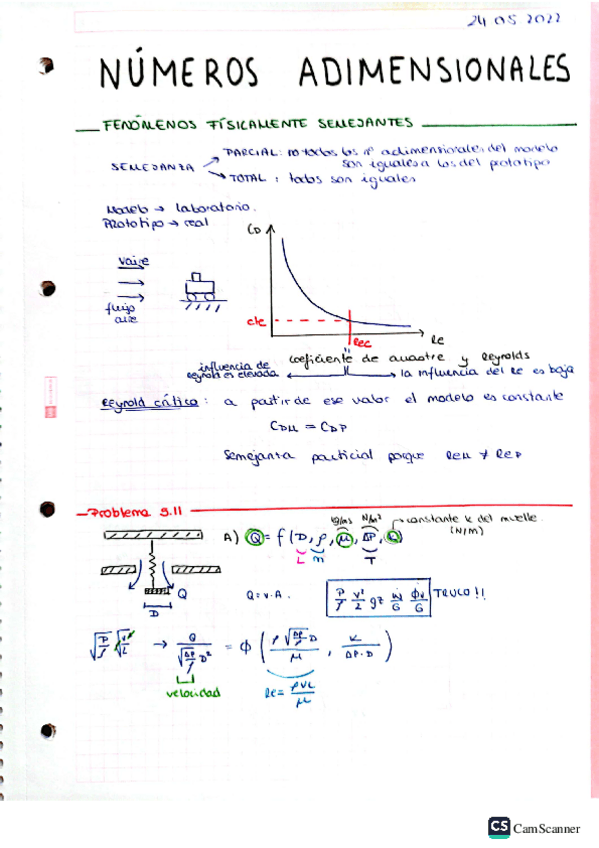 24 05 2022
NÚMEROS ADIMENSIONALES
FENÓMENOS FÍSICAMENTE SEMEJANTES
SEMEJANZA
PARCIAL: no todos los nº adimensionales del modelo
son iguales a los del prototipo
TOTAL: todos son iguales
Modelo → laboratorio.
Prototipo → real
CD
flujo
aire
cte
Rec
Re
coeficiente de arrastre y Reynolds
influencia de
Reynolds es elevada
la influencia del Re es baja
Reynold crítico: a partir de ese valor el modelo es constante
CDM = CDP
Semejanza particial porque ReM ≠ ReP
Problema 5.11
kg/ms N/m² constante k del muelle
(N/m)
A) Q = f (D, ρ, μ, ΔP, k)
L m T
Q
D
Q = v·A.
P/ρ v²/2 gz Ẇ/G Φv/G TRUCO!!
√P/ρ √v²/L → Q/(√(ΔP/ρ) D²) = Φ (ρ√(ΔP/ρ) D/μ , k/(ΔP·D))
velocidad
Re = ρVL/μ
CS CamScanner